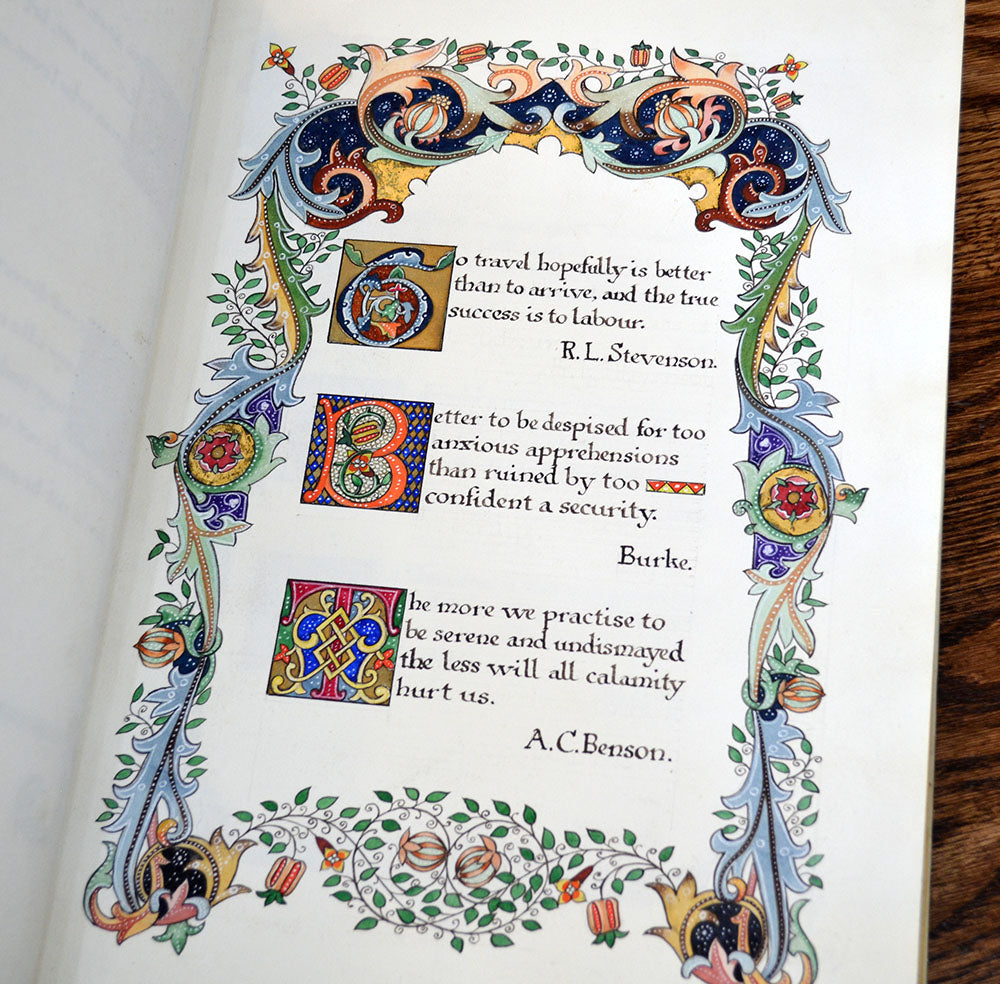 To travel hopefully is better
than to arrive, and the true
success is to labour.
R. L. Stevenson.
Better to be despised for too
anxious apprehensions
than ruined by too
confident a security.
Burke.
The more we practise to
be serene and undismayed
the less will all calamity
hurt us.
A. C. Benson.